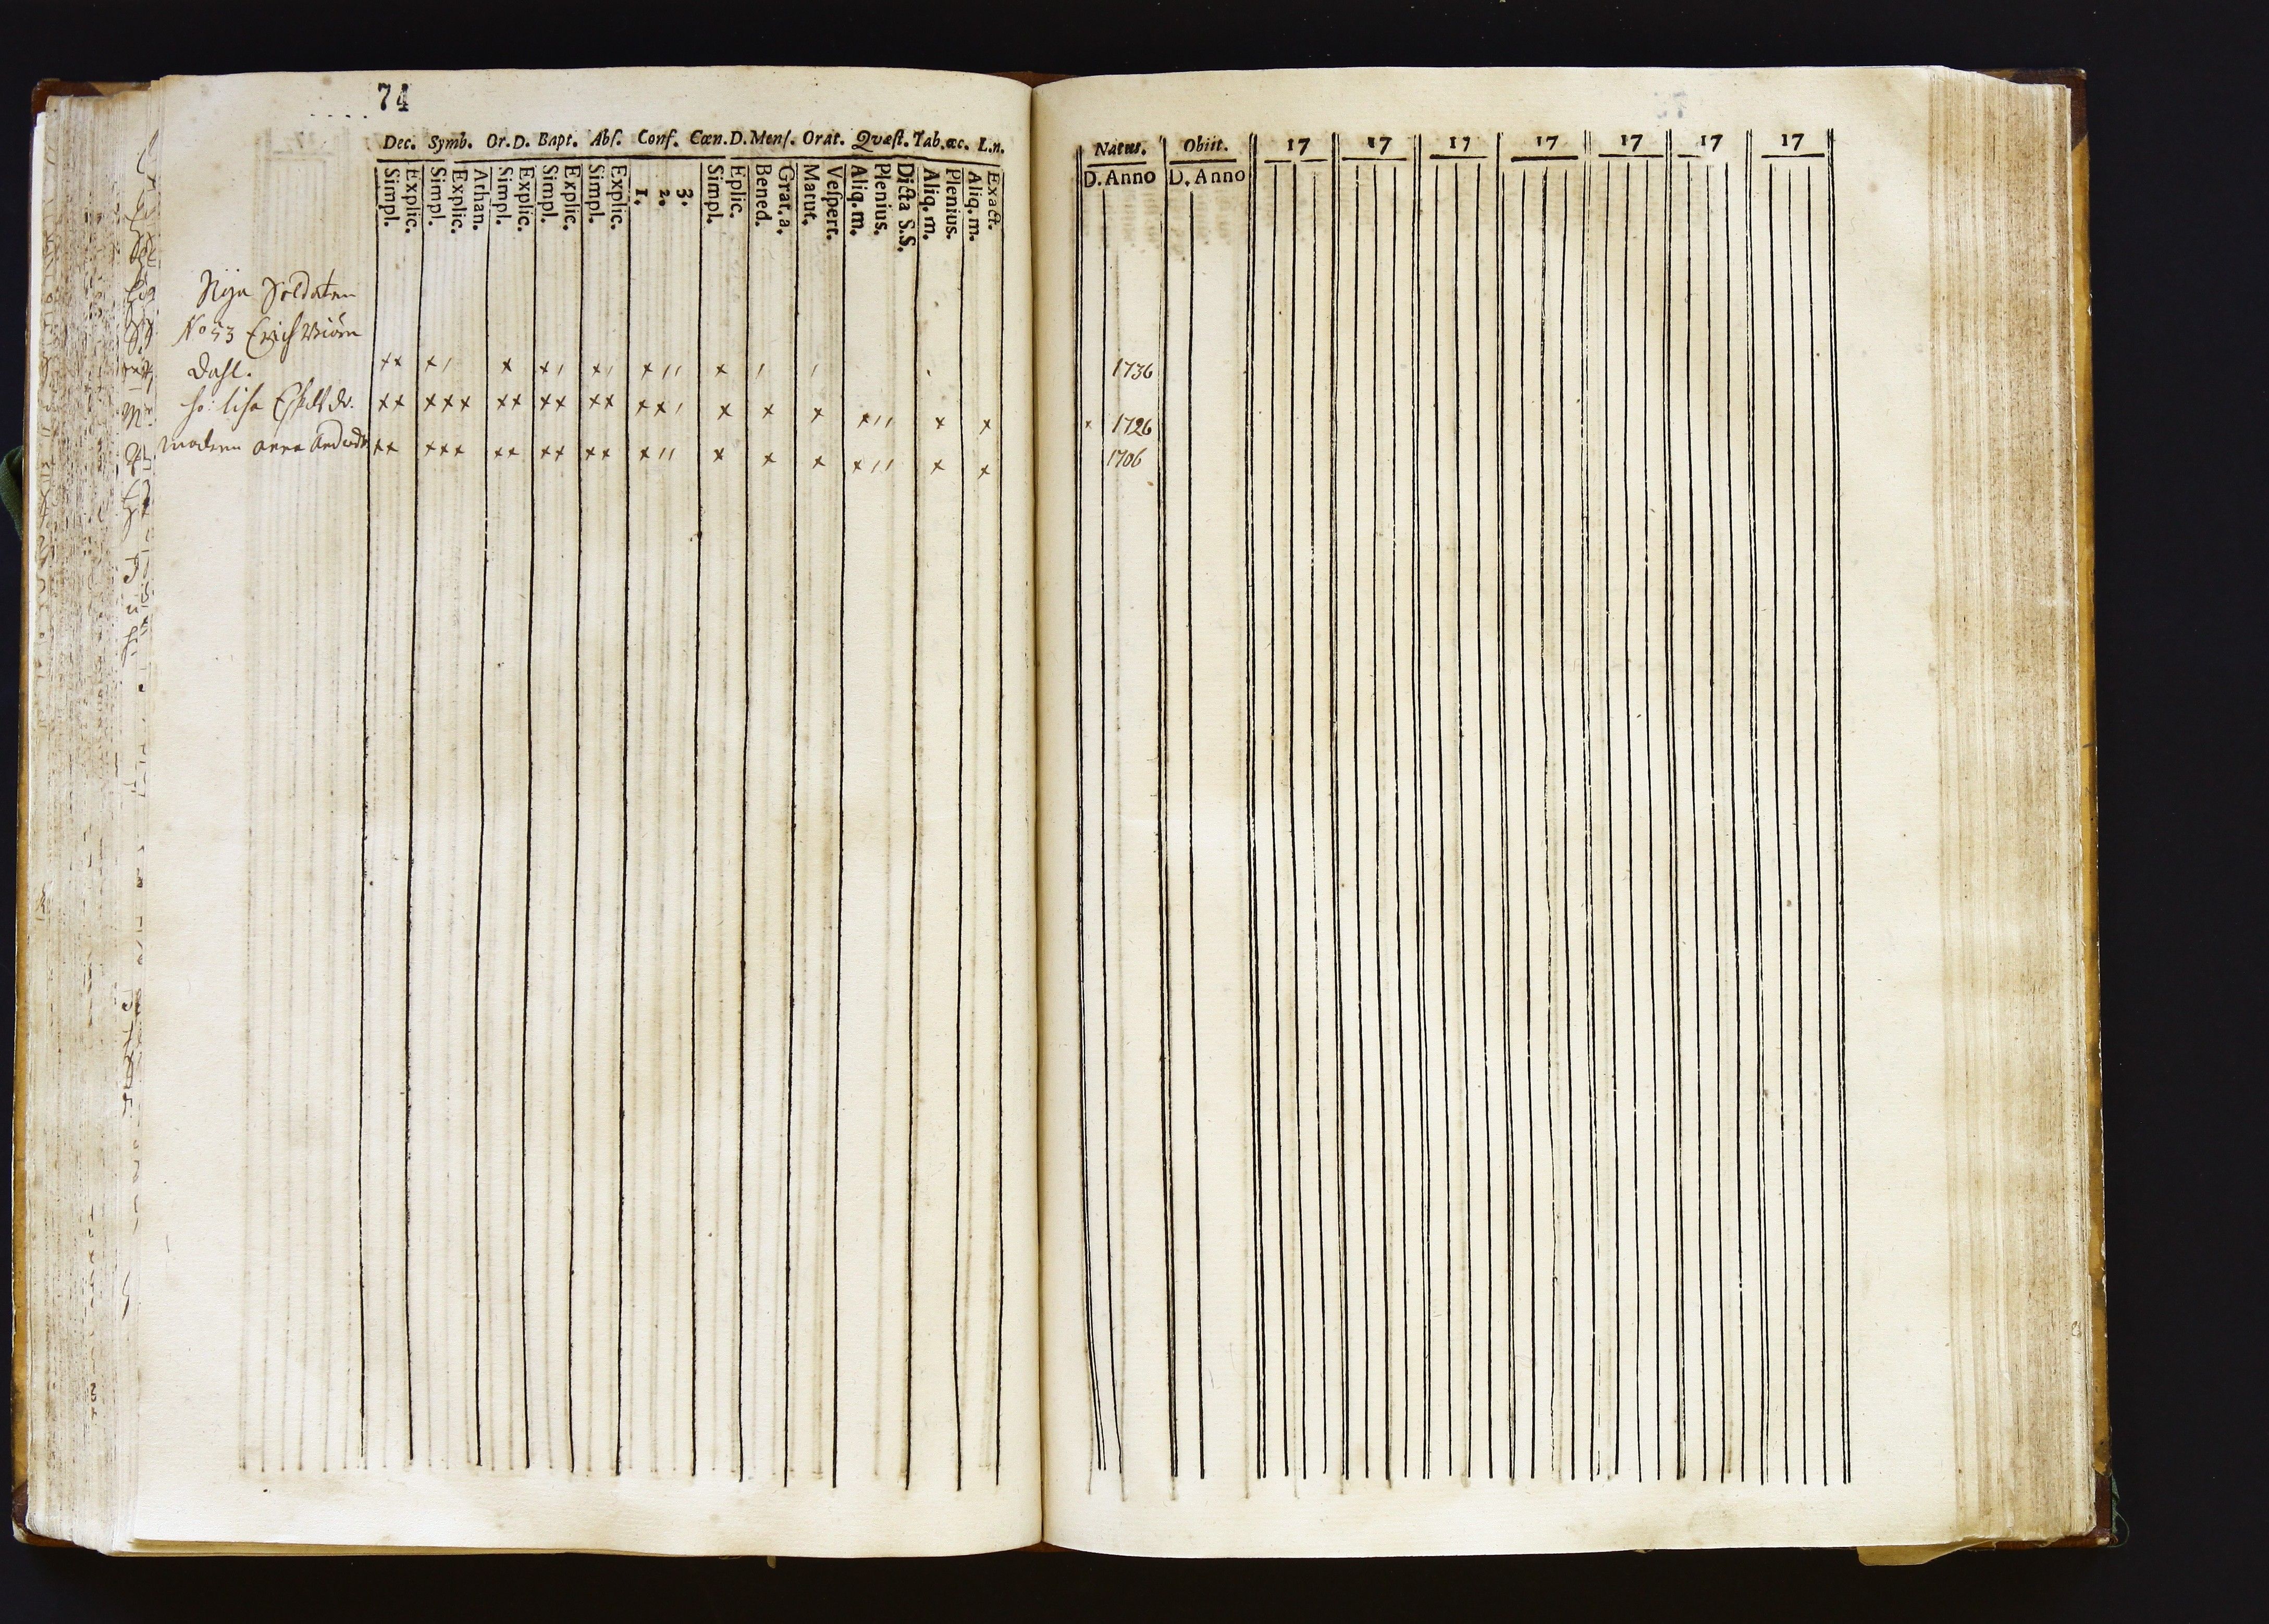 74
Dec. Symb. Or. D. Bapt. Abſ. Conf. Cœn. D. Menſ. Orat. Qvæſt. Tab. œc. L.n.
Simpl. Explic. Simpl. Explic. Athan. Simpl. Explic. Simpl. Explic. Simpl. Explic. 1. 2. 3. Simpl. Eplic. Bened. Grat. a. Matut. Veſpert. Aliq. m. Plenius. Dicta S.S. Aliq. m. Plenius. Aliq. m. Exact.
Natus. Obiit. 17 17 17 17 17 17 17
D. Anno D. Anno
Nya Soldaten
No 53 Erich Biörn
Dahl. 1736
h: Lisa 1726
modren Anna 1706